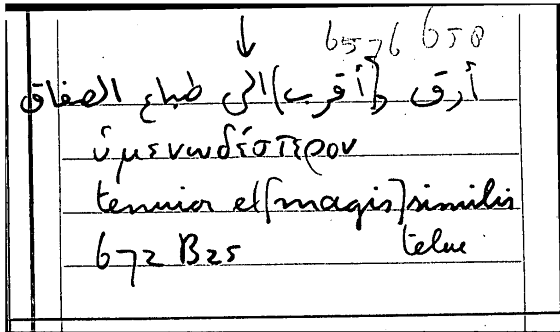 ↓ 6576 658
أرق و[أقرب] الى طباع الصفاق
ὑμενωδέστερον
tenuior et [magis] similis
672 B25 telae